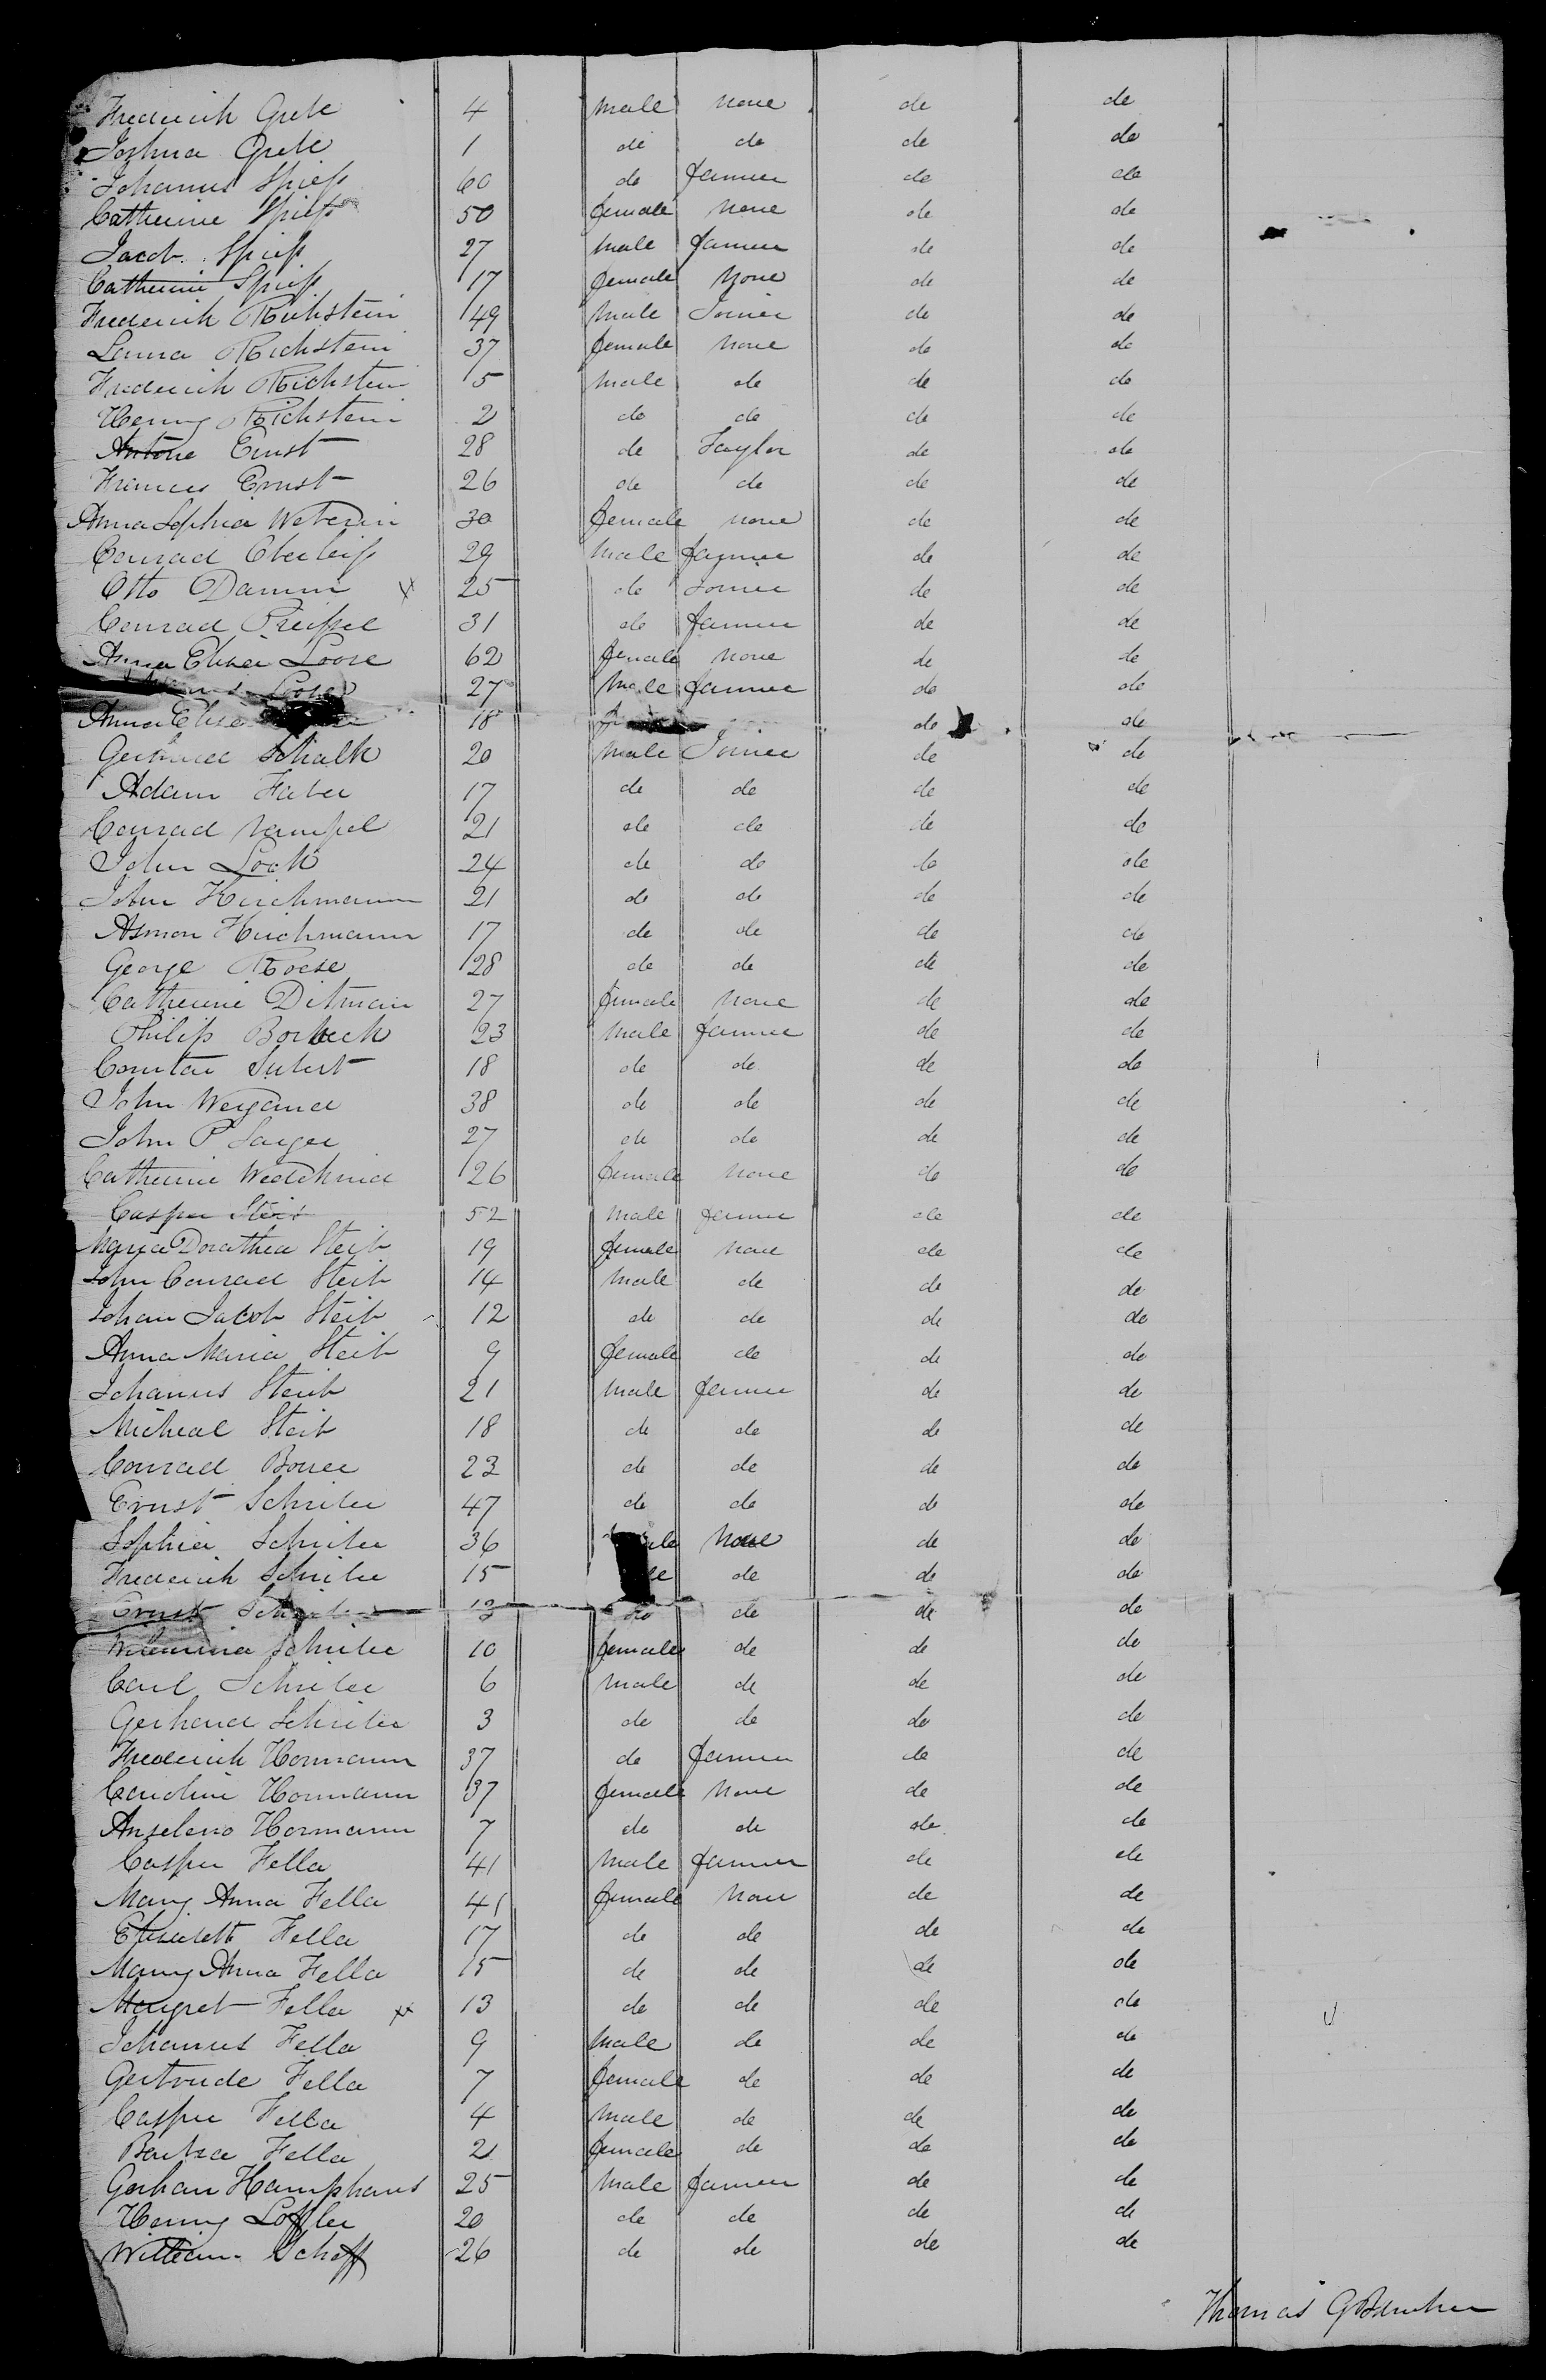 Frederick Grebe 4 male none do do
Joshua Grebe 1 do do do do
Johannes Spiess 60 do farmer do do
Catherine Spiess 50 female none do do
Jacob Spiess 27 male farmer do do
Catherine Spiess 17 female none do do
Frederick Richstein 49 male Joiner do do
Laura Richstein 37 female none do do
Frederick Richstein 5 male do do do
Henry Richstein 2 do do do do
Antone Ernst 28 do Taylor do do
Frances Ernst 26 do do do do
Anna Sophia Weberin 30 female none do do
Conrad Eberleiss 29 male farmer do do
Otto Damm 25 do Joiner do do
Conrad Preissel 31 do farmer do do
Anna Elisa Loose 62 female none do do
Loose 27 male farmer do do
Anna Elise 18 do do
Schalk 20 male Joiner do do
Adam Faber 17 do do do do
Conrad Vampel 21 do do do do
John Lock 24 do do do do
John Hirchmann 21 do do do do
Asmon Hirchmann 17 do do do do
George Roese 28 do do do do
Catherine Ditman 27 female none do do
Philip Borbeck 23 male farmer do do
Subert 18 do do do do
John Weigand 38 do do do do
John P Sarger 27 do do do do
Catherine 26 female none do do
Casper Steib 52 male farmer do do
Maria Dorathea Steib 19 female none do do
John Conrad Steib 14 male do do do
Johan Jacob Steib 12 do do do do
Anna Maria Steib 9 female do do do
Johannes Steib 21 male farmer do do
Micheal Steib 18 do do do do
Conrad Boner 23 do do do do
Ernst Schriber 47 do do do do
Sophia Schriber 36 none do do
Frederick Schriber 15 do do do
Ernst Schriber 13 do do do do
Wilemina Schriber 10 female do do do
Carl Schriber 6 male do do do
Gerhard Schriber 3 do do do do
Frederick Hormann 37 do farmer do do
Caroline Hormann 37 female none do do
Anseleno Hormann 7 do do do do
Casper Fella 41 male farmer do do
Mary Anna Fella 41 female none do do
Elisabeth Fella 17 do do do do
Mary Anna Fella 15 do do do do
Margret Fella 13 do do do do
Johannes Fella 9 male do do do
Gertrude Fella 7 female do do do
Casper Fella 4 male do do do
Fella 2 female do do do
Gerhan Hamphaus 25 male farmer do do
Henry Loffler 20 do do do do
William Schoff 26 do do do do
Thomas G